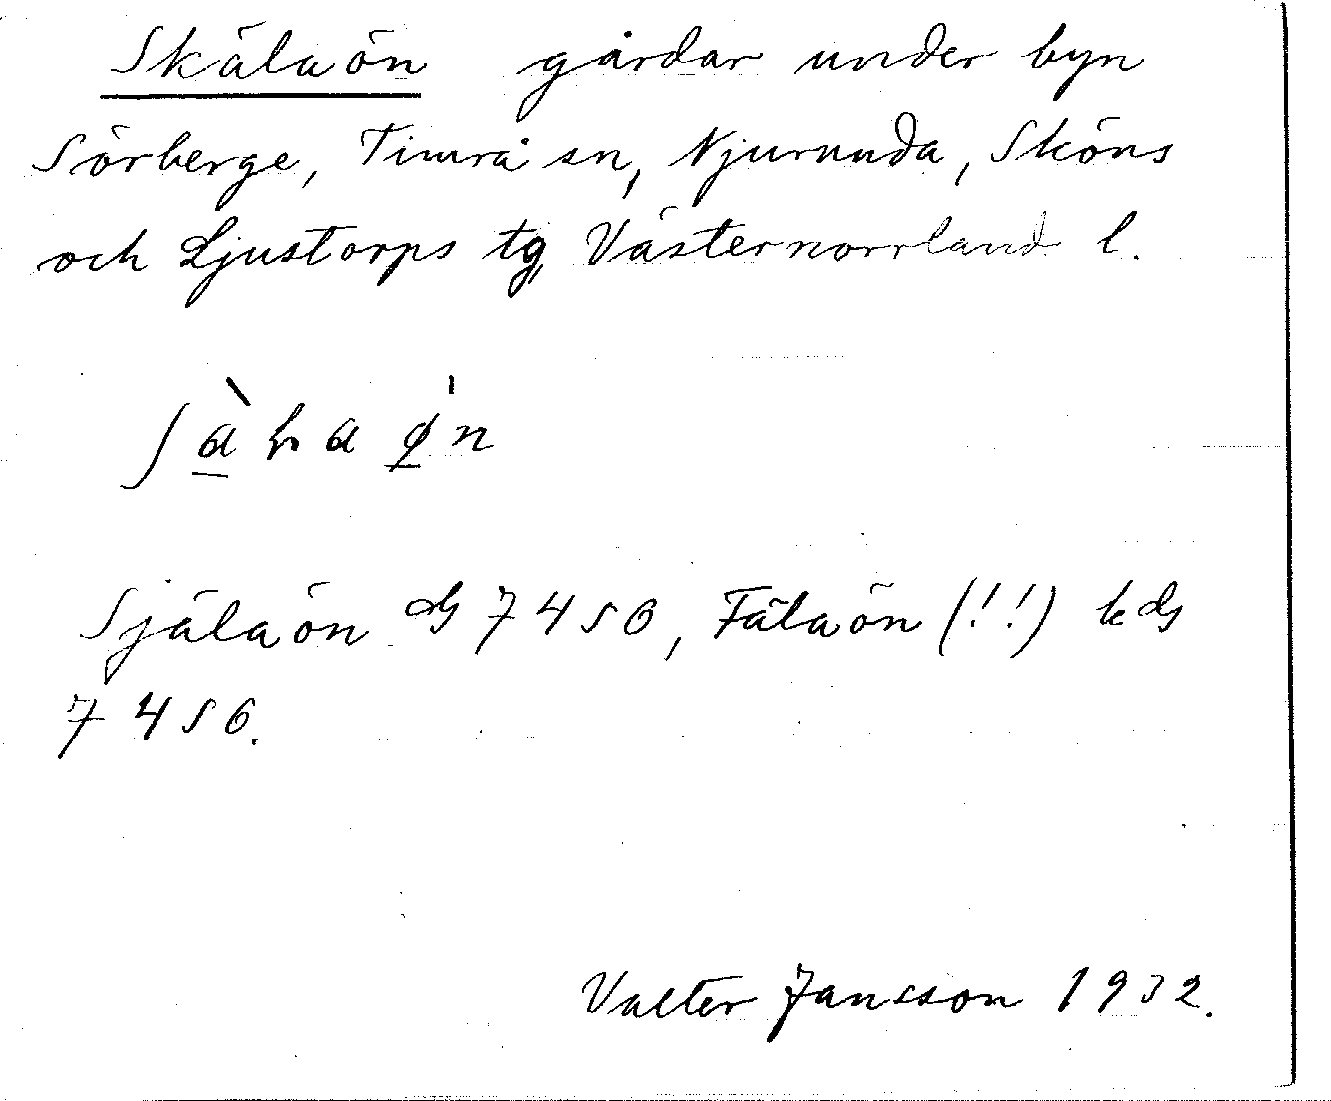 Skälaön gårdar under byn
Sörberge, Timrå sn, Njurunda, Sköns
och Ljustorps tg, Västernorrland l.
Själaön 7450, Fälaön (!!)
7456.
Valter Jansson 1932.